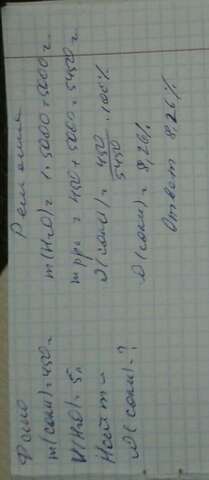 Дано
m(соли)=450г
V(H₂O)=5л
Найти
ω(соли)-?
Решение
m(H₂O)=1·5000=5000г
m р-ра=450+5000=5450г
ω(соли)=450/5450·100%
ω(соли)=8,26%
Ответ 8,26%